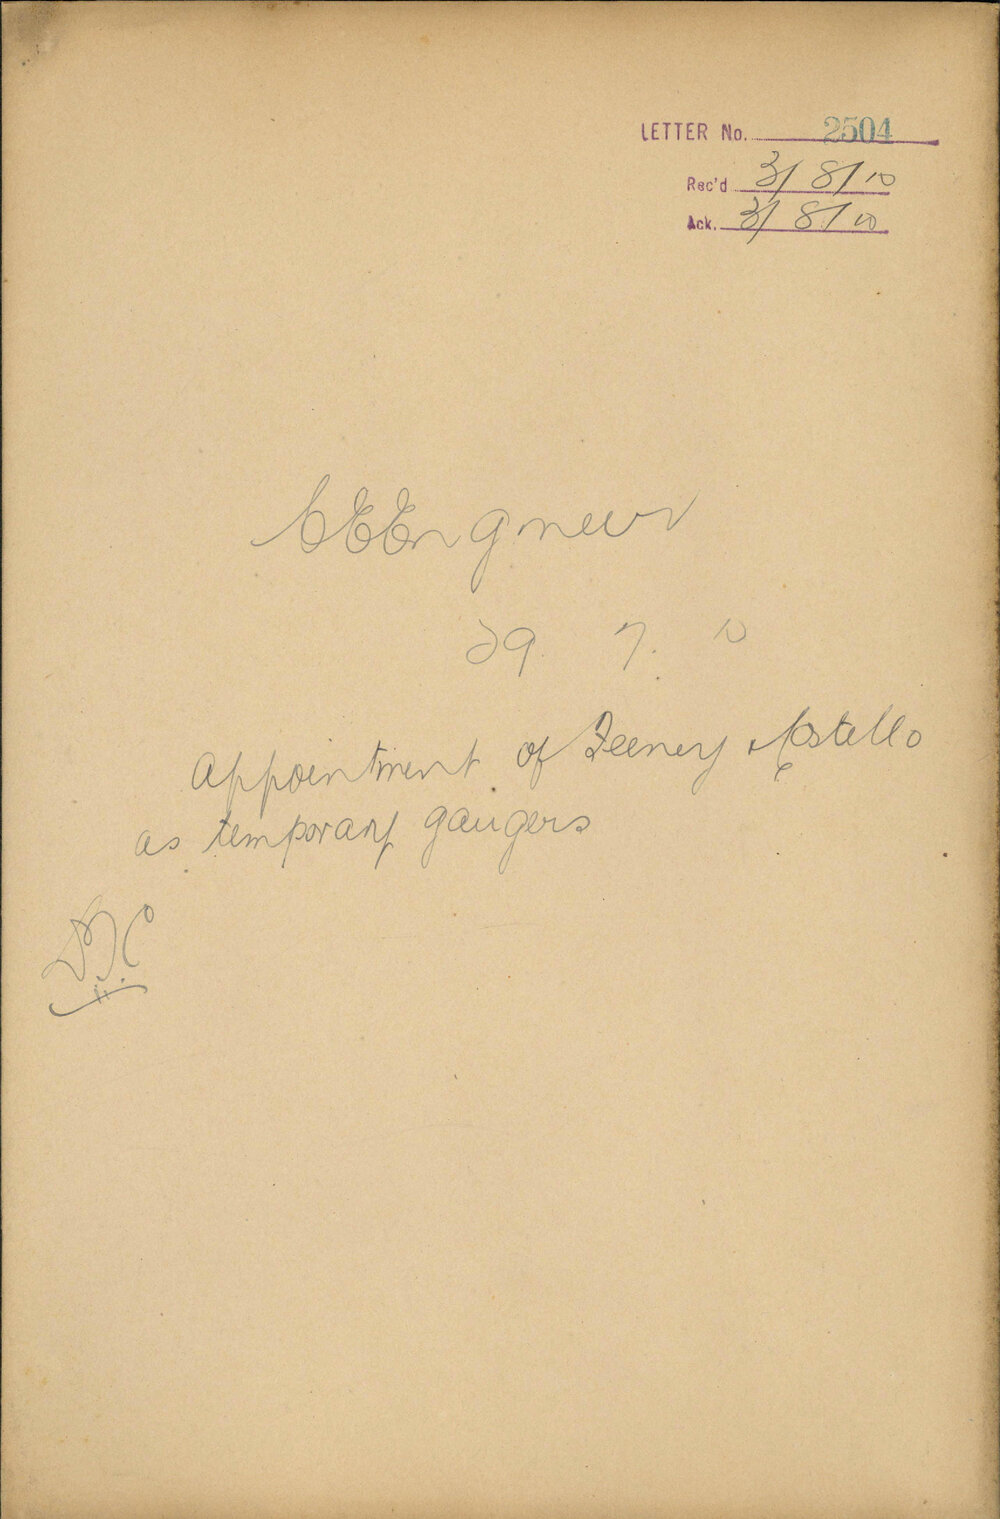 LETTER No. 2504
Rec'd 3/8/10
Ack. 3/8/10
CEEngineer
29. 7. 10
Appointment of Feeney & Costello
as temporary gaugers